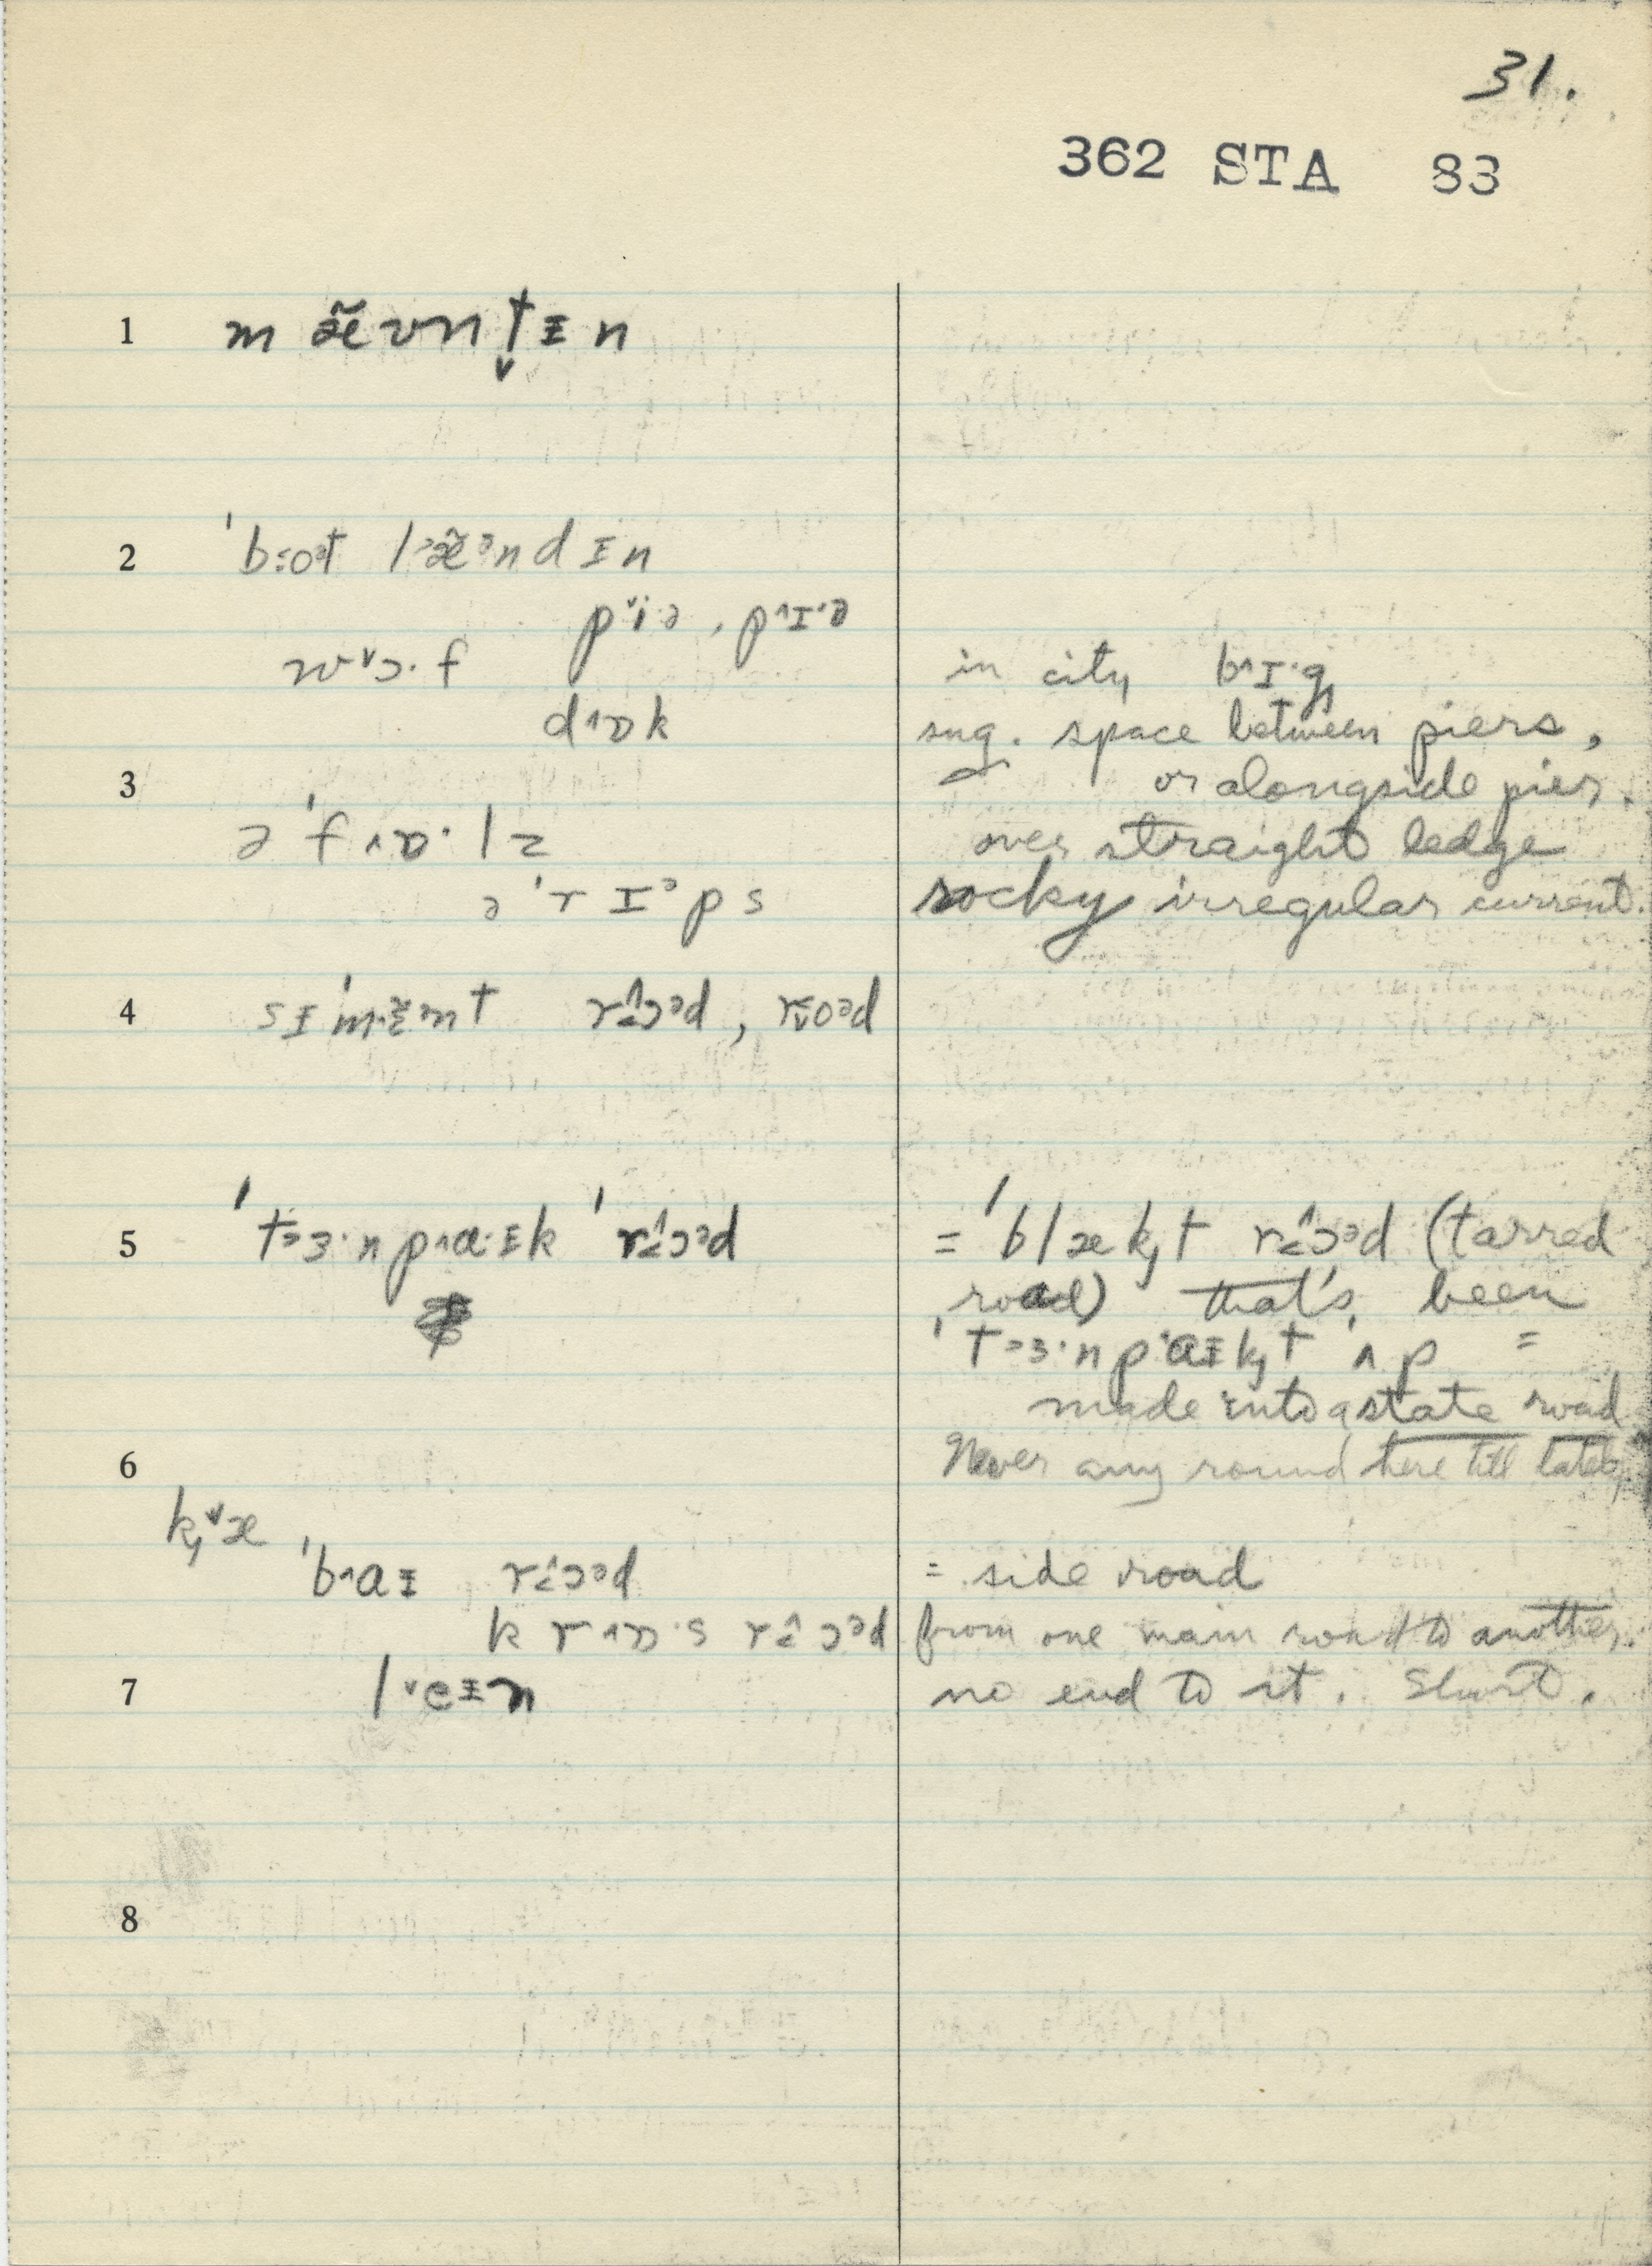 31.
362 STA 83
1 m æ̃ ʊ n t̬ ɪ n
2 ˈb:oət l>æ̃ᵊn d ɪ n
p˅i·ə, p^ɪ·ə
w˅ɔ· f in city b^ɪ·g
d^ɒ k sug. space between piers,
3 or alongside pier.
ə ˈf ^ɒ· l z over straight ledge
ə ˈr ɪᵊ p s rocky irregular current.
4 s ɪ ˈm·ɛ̃ m t r^ɔᵊd, r oᵊd
5 ˈt>ɜ· n p^a·ɪ k ˈr^ɔᵊd = ˈb l æ k, t r^ɔᵊd (tarred
road) that's been
ˈt>ɜ· n p a ɪ k, t ʌ p =
made into a state road
6 Never any round here till lately
k,˅æ
ˈb^a ɪ r^ɔᵊd = side road
k r^ɒ·s r^ɔᵊd from one main road to another.
7 l˅e ɪ n no end to it. Short.
8